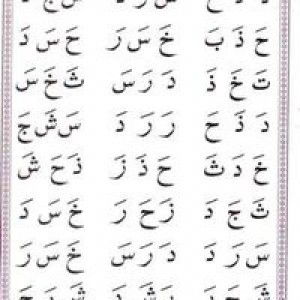 حَ ذَ بَ خَ سَ رَ حَ سَ دَ
تَ خَ ذَ دَ رَ سَ ثَ خَ سَ
دَ ذَ حَ رَ رَ دَ سَ شَ جَ
خَ دَ ثَ حَ ذَ زَ ذَ حَ شَ
ثَ جَ دَ زَ حَ رَ خَ سَ دَ
سَ رَ دَ دَ رَ سَ خَ سَ رَ